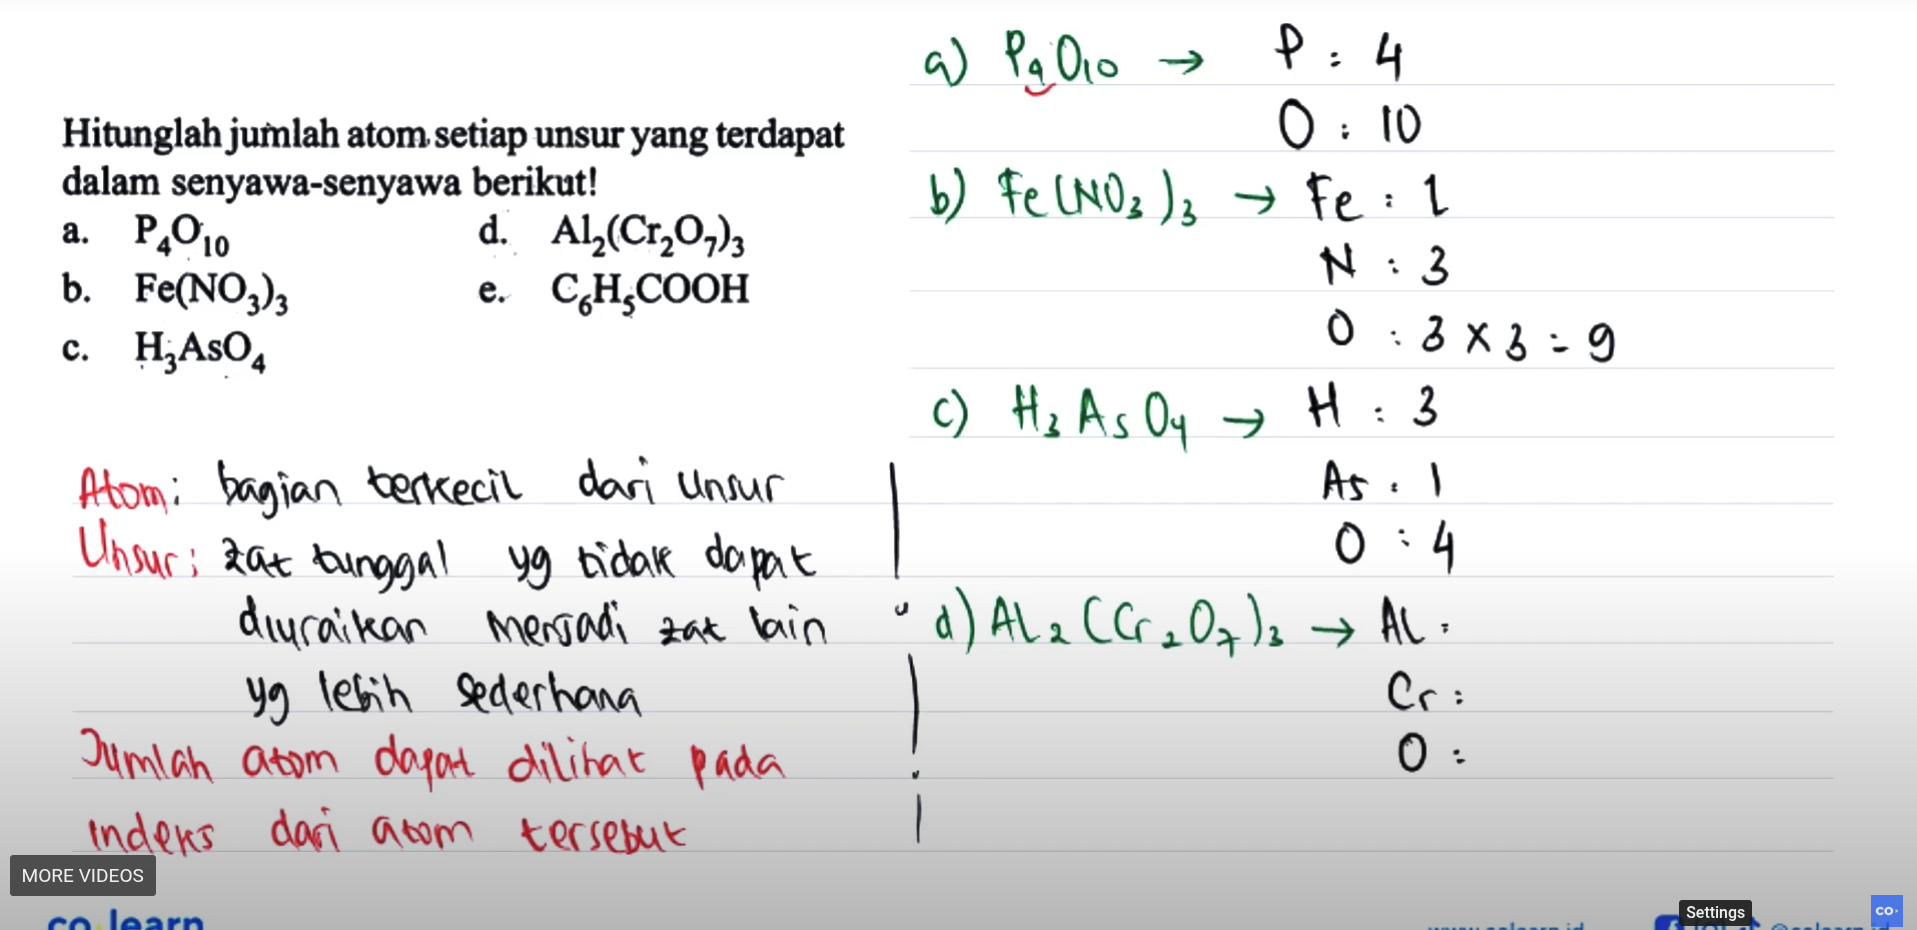 Hitunglah jumlah atom setiap unsur yang terdapat
dalam senyawa-senyawa berikut!
a. P₄O₁₀
b. Fe(NO₃)₃
c. H₃AsO₄
d. Al₂(Cr₂O₇)₃
e. C₆H₅COOH
Atom: bagian terkecil dari unsur
Unsur: zat tunggal yg tidak dapat
diuraikan menjadi zat lain
yg lebih sederhana
Jumlah atom dapat dilihat pada
indeks dari atom tersebut
a) P₄O₁₀ → P : 4
O : 10
b) Fe(NO₃)₃ → Fe : 1
N : 3
O : 3 x 3 = 9
c) H₃AsO₄ → H : 3
As : 1
O : 4
d) Al₂(Cr₂O₇)₃ → Al :
Cr :
O :
MORE VIDEOS
co·learn
Settings
co·